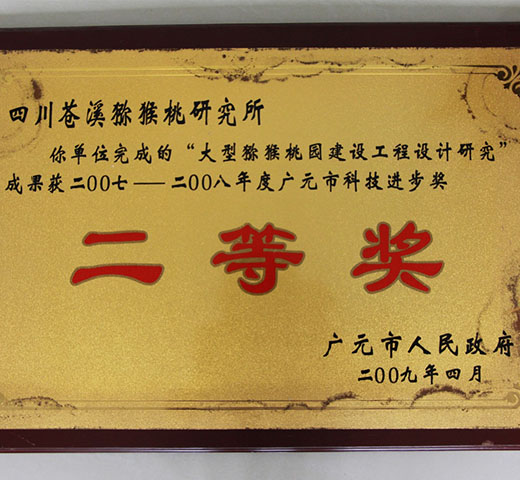 四川苍溪猕猴桃研究所
你单位完成的“大型猕猴桃园建设工程设计研究”
成果获二00七——二00八年度广元市科技进步奖
二等奖
广元市人民政府
二00九年四月